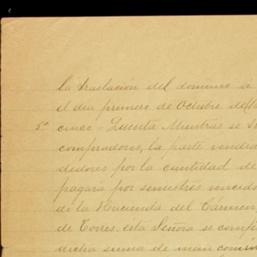 la traslación del dominio se
el dia primero de Octubre del
5ª cinco = Quinta Mientras se
compradores, la parte vendid
dedores por la cantidad de
pagará por semestres vencidos
de la Hacienda del Cármen,
de Torres. esta Señora se comp
dicha suma de mancomun